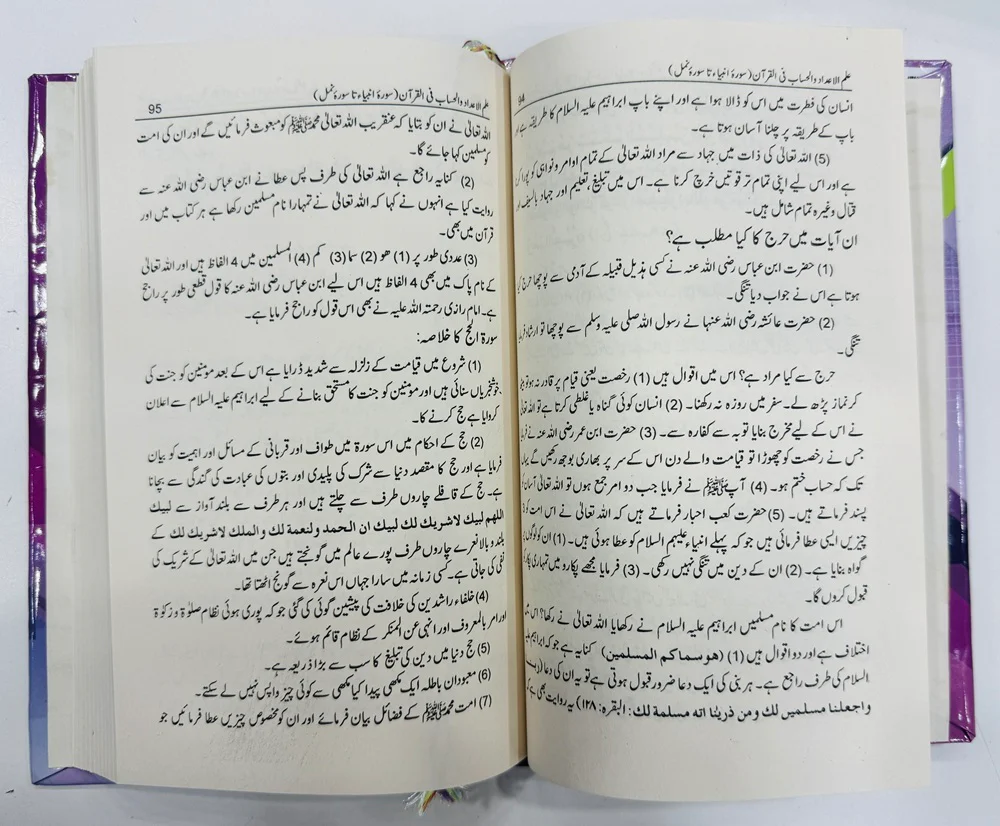 علم الاعداد والحساب فی القرآن (سورۂ انبیاء تا سورۂ نمل)
94
انسان کی فطرت میں اس کو ڈالا ہوا ہے اور اپنے باپ ابراہیم علیہ السلام کا طریقہ ہے اور
باپ کے طریقہ پر چلنا آسان ہوتا ہے۔
(5) اللہ تعالیٰ کی ذات میں جہاد سے مراد اللہ تعالیٰ کے تمام اوامر و نواہی کو پورا کرنا
ہے اور اس لیے اپنی تمام تر قوتیں خرچ کرنا ہے۔ اس میں تبلیغ، تعلیم اور جہاد بالسیف اور
قتال وغیرہ تمام شامل ہیں۔
ان آیات میں حرج کا کیا مطلب ہے؟
(1) حضرت ابن عباس رضی اللہ عنہ نے کسی ہذیل قبیلہ کے آدمی سے پوچھا حرج کیا
ہوتا ہے اس نے جواب دیا تنگی۔
(2) حضرت عائشہ رضی اللہ عنہا نے رسول اللہ صلی علیہ وسلم سے پوچھا تو ارشاد فرمایا
تنگی۔
حرج سے کیا مراد ہے؟ اس میں اقوال ہیں (1) رخصت یعنی قیام پر قادر نہ ہو تو بیٹھ
کر نماز پڑھ لے۔ سفر میں روزہ نہ رکھنا۔ (2) انسان کوئی گناہ یا غلطی کرتا ہے تو اللہ تعالیٰ
نے اس کے لیے مخرج بنایا توبہ سے کفارہ سے۔ (3) حضرت ابن عمر رضی اللہ عنہ نے فرمایا
جس نے رخصت کو چھوڑا تو قیامت والے دن اس کے سر پر بھاری بوجھ رکھیں گے یہاں
تک کہ حساب ختم ہو۔ (4) آپ ﷺ نے فرمایا جب دو امر جمع ہوں تو اللہ تعالیٰ آسان کو
پسند فرماتے ہیں۔ (5) حضرت کعب احبار فرماتے ہیں کہ اللہ تعالیٰ نے اس امت کو 3
چیزیں ایسی عطا فرمائی ہیں جو کہ پہلے انبیاء علیہم السلام کو عطا ہوئی ہیں۔ (1) ان کو لوگوں پر
گواہ بنایا ہے۔ (2) ان کے دین میں تنگی نہیں رکھی۔ (3) فرمایا مجھے پکارو میں تمہاری پکار کو
قبول کروں گا۔
اس امت کا نام مسلمیں ابراہیم علیہ السلام نے رکھایا اللہ تعالیٰ نے رکھا؟ اس میں
اختلاف ہے اور دو اقوال ہیں (1) (هو سماكم المسلمين) کنایہ ہے جو کہ ابراہیم علیہ
السلام کی طرف راجع ہے۔ ہر نبی کی ایک دعا ضرور قبول ہوتی ہے تو یہ ان کی دعا (ربنا
واجعلنا مسلمين لك ومن ذريتنا اته مسلمة لك: البقره: ۱۲۸) یہ روایت بھی ہے کہ
علم الاعداد والحساب فی القرآن (سورۂ انبیاء تا سورۂ نمل)
95
اللہ تعالیٰ نے ان کو بتایا کہ عنقریب اللہ تعالیٰ محمد ﷺ کو مبعوث فرمائیں گے اور ان کی امت
کو مسلمین کہا جائے گا۔
(2) کنایہ راجع ہے اللہ تعالیٰ کی طرف پس عطا نے ابن عباس رضی اللہ عنہ سے
روایت کیا ہے انہوں نے کہا کہ اللہ تعالیٰ نے تمہارا نام مسلمین رکھا ہے ہر کتاب میں اور
قرآن میں بھی۔
(3) عددی طور پر (1) ھو (2) سما (3) کم (4) المسلمین میں 4 الفاظ ہیں اور اللہ تعالیٰ
کے نام پاک میں بھی 4 الفاظ ہیں اس لیے ابن عباس رضی اللہ عنہ کا قول قطعی طور پر راجح
ہے۔ امام رازی رحمتہ اللہ علیہ نے بھی اس قول کو راجح فرمایا ہے۔
سورۃ الحج کا خلاصہ:
(1) شروع میں قیامت کے زلزلہ سے شدید ڈرایا ہے اس کے بعد مومنین کو جنت کی
خوشخبریاں سنائی ہیں اور مومنین کو جنت کا مستحق بنانے کے لیے ابراہیم علیہ السلام سے اعلان
کروایا ہے حج کرنے کا۔
(2) حج کے احکام میں اس سورۃ میں طواف اور قربانی کے مسائل اور اہمیت کو بیان
فرمایا ہے اور حج کا مقصد دنیا سے شرک کی پلیدی اور بتوں کی عبادت کی گندگی سے بچانا
ہے۔ حج کے قافلے چاروں طرف سے چلتے ہیں اور ہر طرف سے بلند آواز سے لبیک
اللهم لبيك لاشريك لك لبيك ان الحمد ولنعمة لك والملك لاشريك لك کے
بلند و بالا نعرے چاروں طرف پورے عالم میں گونجتے ہیں جن میں اللہ تعالیٰ کے شریک کی
نفی کی جاتی ہے۔ کسی زمانہ میں سارا جہاں اس نعرہ سے گونج اٹھتا تھا۔
(4) خلفاء راشدین کی خلافت کی پیشین گوئی کی گئی جو کہ پوری ہوئی نظام صلوٰۃ و زکوٰۃ
اور امر بالمعروف اور انہی عن المنکر کے نظام قائم ہوئے۔
(5) حج دنیا میں دین کی تبلیغ کا سب سے بڑا ذریعہ ہے۔
(6) معبودان باطلہ ایک مکھی پیدا کیا مکھی سے کوئی چیز واپس نہیں لے سکتے۔
(7) امت محمد ﷺ کے فضائل بیان فرمائے اور ان کو مخصوص چیزیں عطا فرمائیں جو